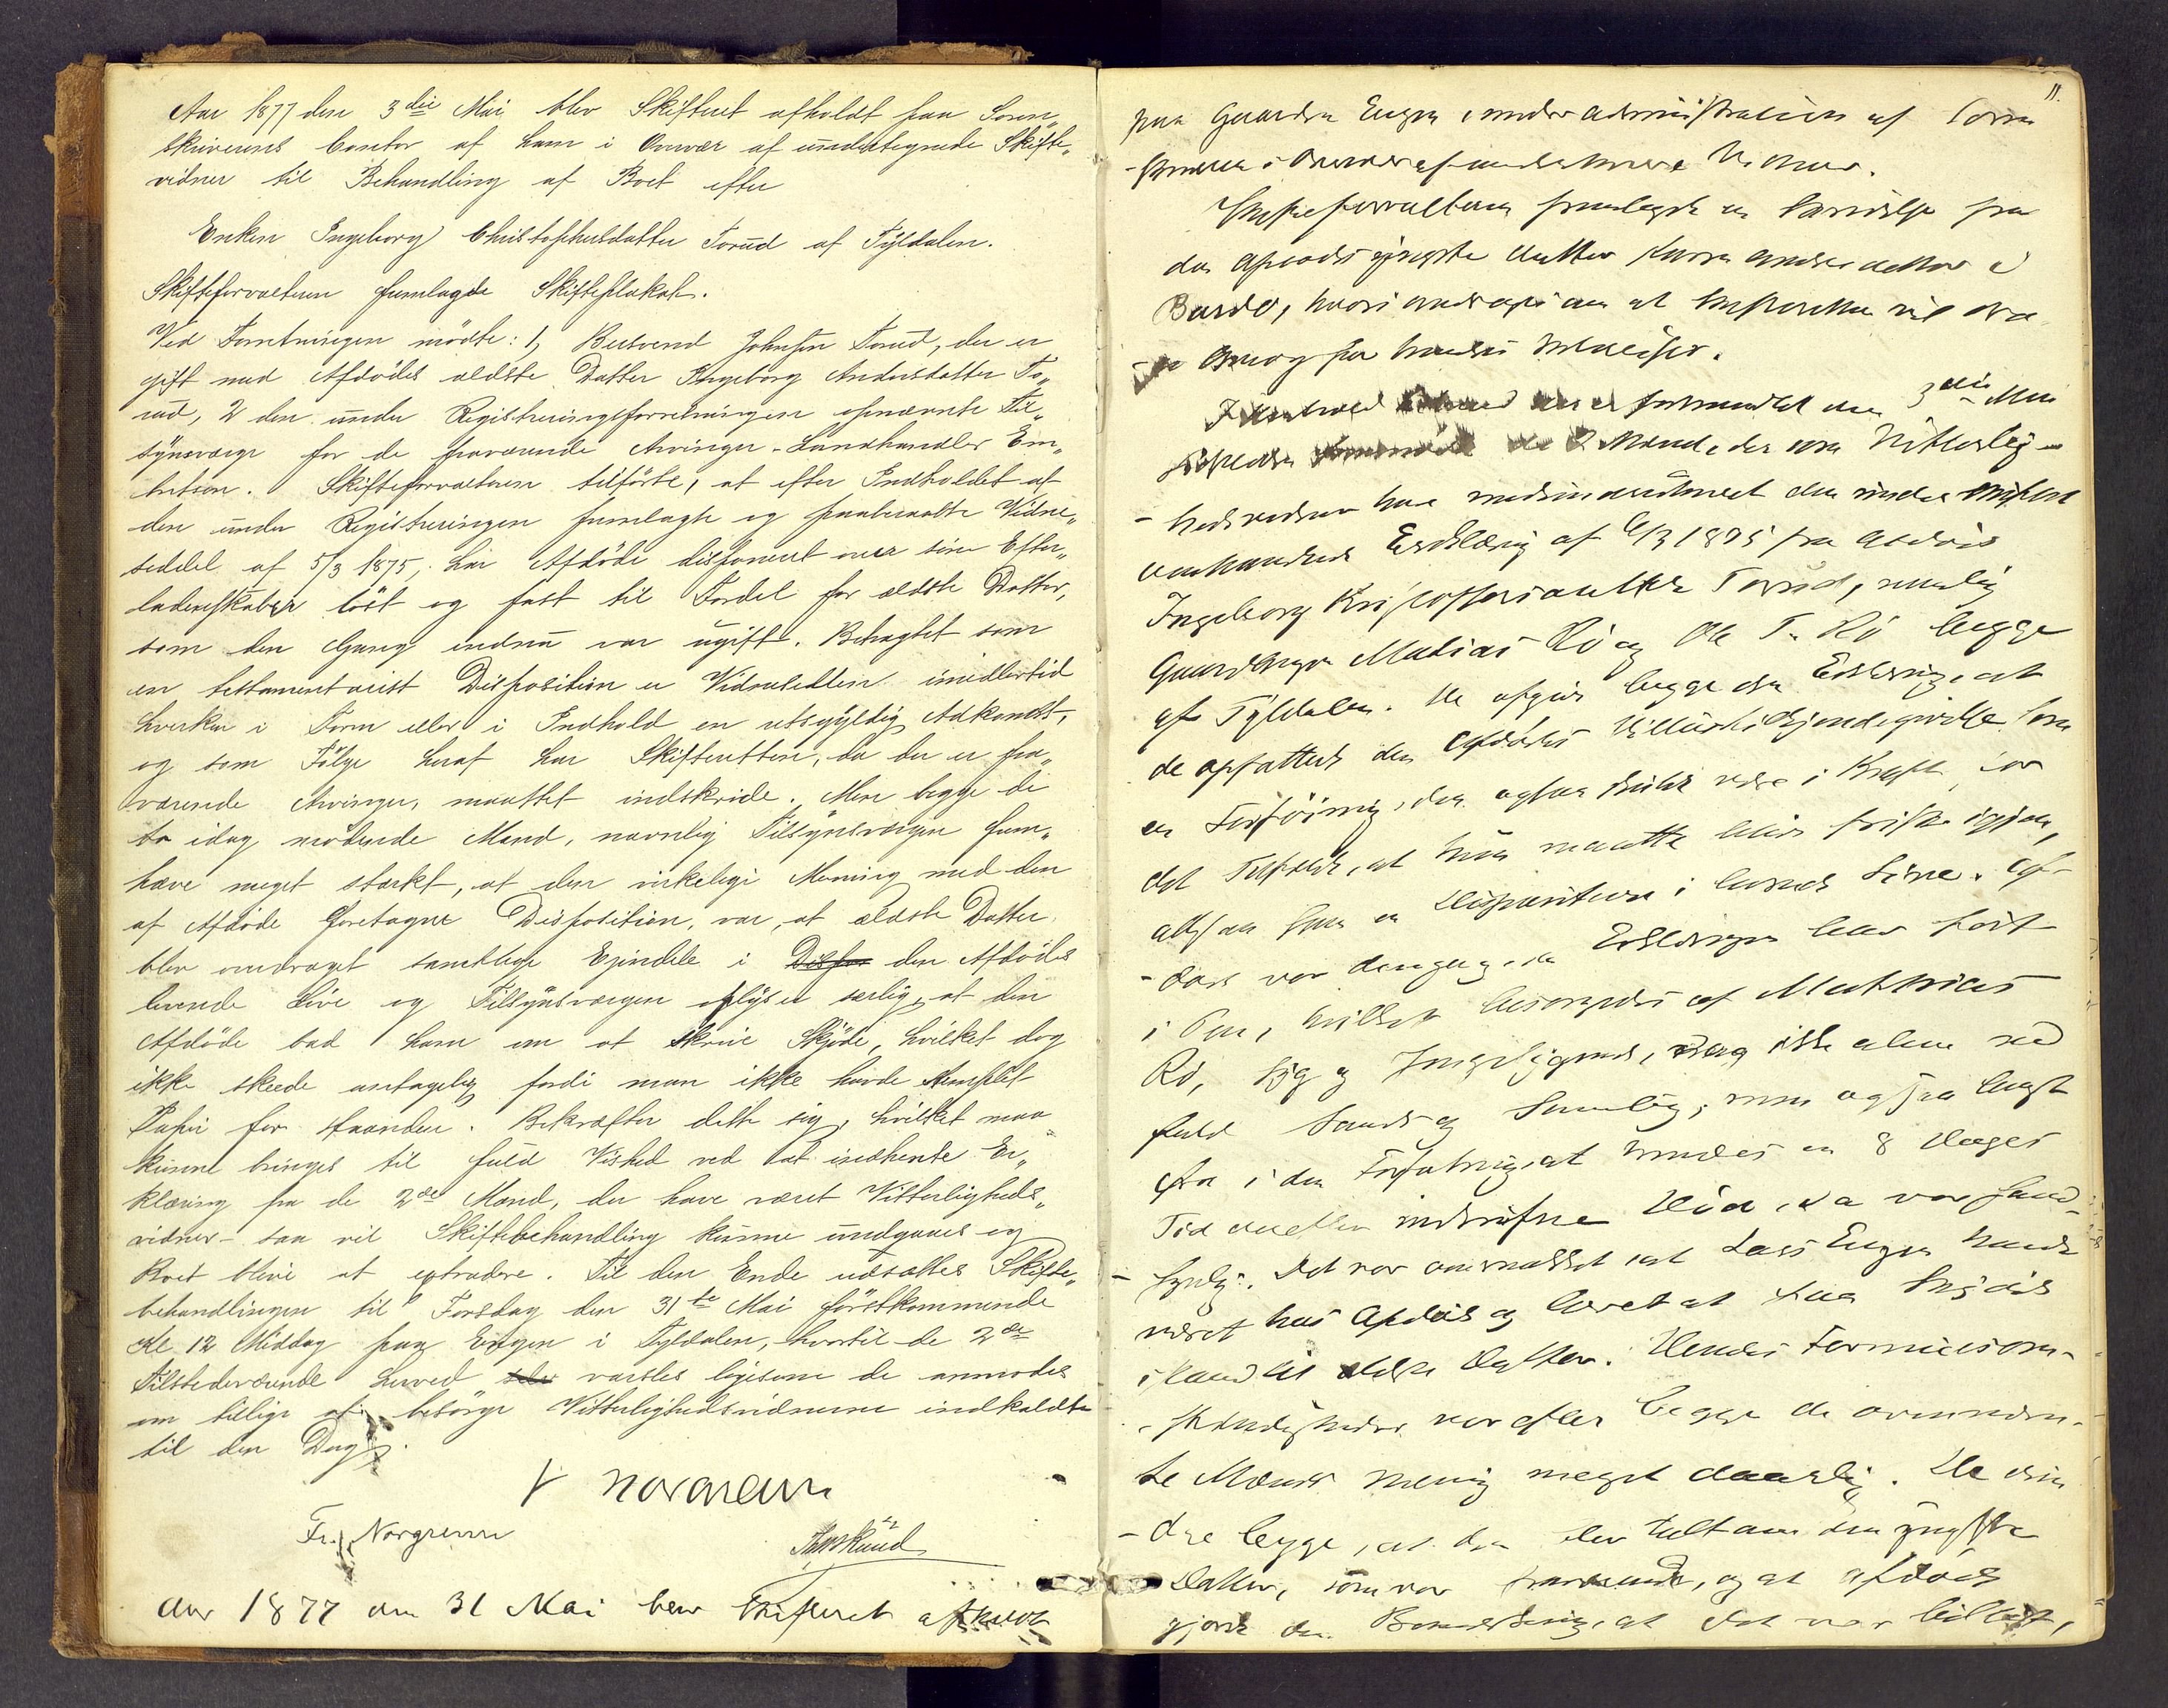 Aar 1877 den 3die Mai blev Skifteret afholdt paa Soren„
skriverens Contor af ham i Overvær af undertegnede Skifte„
vidner til Behandling af Boet efter
Enken Ingeborg Christophersdatter Torud af Tyldalen.
Skifteforvalteren fremlagde Skifteplakat.
Ved Forretningen mødte: 1, Bersvend Johnsen Torud, der er
gift med Afdødes ældste Datter Ingeborg Andersdatter To„
rud, 2 den under Registreringsforretningen opnævnte Til„
synsværge for de fraværende Arvinger - Landhandler Em„
bretsen. Skifteforvalteren tilførte, at efter Indholdet af
den under Registreringen fremlagte og paaberaabte Vidne„
seddel af 5/3 1875, har Afdøde disponeret over sine Efter„
ladenskaber løst og fast til Fordel for ældste Datter,
som den Gang endnu var ugift. Betragtet som
en testamentarisk Disposition er Vidneseddelen imidlertid
hverken i Form eller i Indhold en retsgyldig Adkomst,
og som Følge heraf har Skifteretten, da der er fra„
værende Arvinger, maattet indskride. Men begge de
to idag mødende Mænd, navnlig Tilsynsværgen frem„
hæve meget stærkt, at den virkelige Mening med den
af Afdøde foretagne Disposition, var, at ældste Datter
blev overdraget samtlige Ejendele i Dispo den Afdødes
levende Live og Tilsynsværgen oplyser særlig, at den
Afdøde bad ham om at skrive Skjøde, hvilket dog
ikke skeede antagelig fordi man ikke havde stemplet
Papir for Haanden. Bekræfter dette sig, hvilket maa
kunne bringes til fuld Vished ved at indhente Er„
klæring fra de 2de Mænd, der have været Vitterligheds„
vidner - saa vil Skiftebehandling kunne undgaaes og
Boet blive at extradere. Til den Ende udsættes Skifte„
behandlingen til Torsdag den 31te Mai førstkommende
Kl 12 Middag paa Engen i Tyldalen, hvortil de 2de
Tilstedeværende herved varsles ligesom de anmodes
om tillige at besørge Vitterlighedsvidnerne indkaldte
til den Dag.
Norgrenn
Fr. Norgrenn
Aar 1877 den 31 Mai blev Skifteret afholdt
11.
paa Gaarden Engen under Administration af Soren
-skriveren i Overvær af undertegnede Vidner.
Skifteforvalteren fremlagde en Skrivelse fra
den Afdødes yngste Datter Karen Andersdatter i
Bardo, hvori andrages om at Skifteretten vil dra-
ge Omsorg for hendes Interesser.
forhandlet den 3die Mai
Mænd, der som Vitterlig-
-hedsvidner have medunderskrevet den under Skiftet
omhandlede Erklæring af 5/3 1875 fra Afdøde
Ingeborg Kristoffersdatter Torud, nemlig
Gaardbruger Matias Rø og Ole T. Rø begge
af Tyldalen. De afgive begge den Erklæring, at
de opfattede den Afdødes Villies Tilkjendegivelse som
en Disposition, der ogsaa skulde være i Kraft, for
det Tilfælde, at hun maatte blive frisk igjen,
altsaa som en Disposition i levende Live. Af-
-døde var dengang, da Erklæringen blev ført
i Pen, hvilket besørgedes af Mathias
Rø, syg og sengeliggende, dog ikke alene ved
fuld Sands og Samling, men ogsaa langt
fra i den Forfatning, at hendes en 8 Dages
Tid derefter indtrufne Død, da var sand-
-synlig. Det var omsnakket at Lars Engen havde
været hos Afdøde og lovet at faa Skjøde
istand til ældste Datter. Hendes Formuesom-
-stændigheder var efter begge de ovennævn-
te Mænds Mening meget daarlig. De erin
-dre begge, at der blev talt om den yngste
Datter, som var fraværende, og at afdøde
gjorde den Bemærkning, at det var billigt,